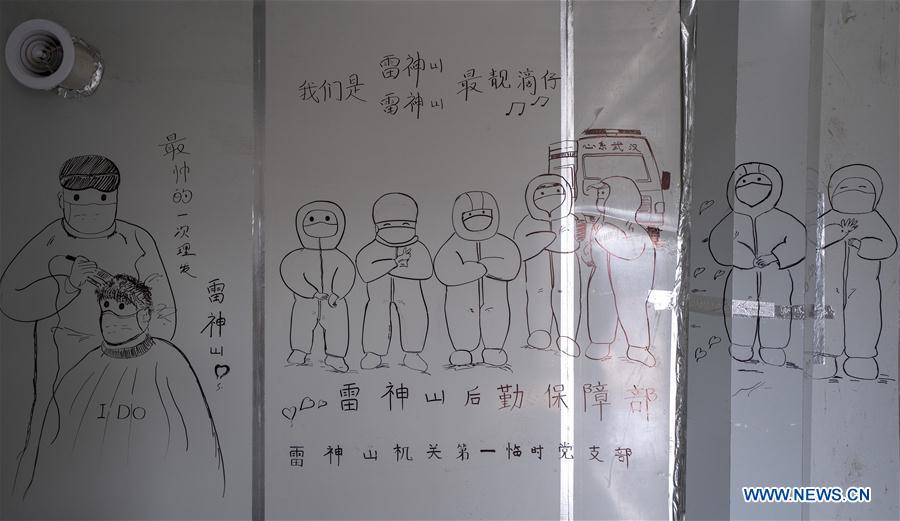 我们是
雷神山
雷神山
最靓滴仔
心系武汉
最帅的一次理发
雷神山
I DO
雷神山后勤保障部
雷神山机关第一临时党支部
WWW.NEWS.CN